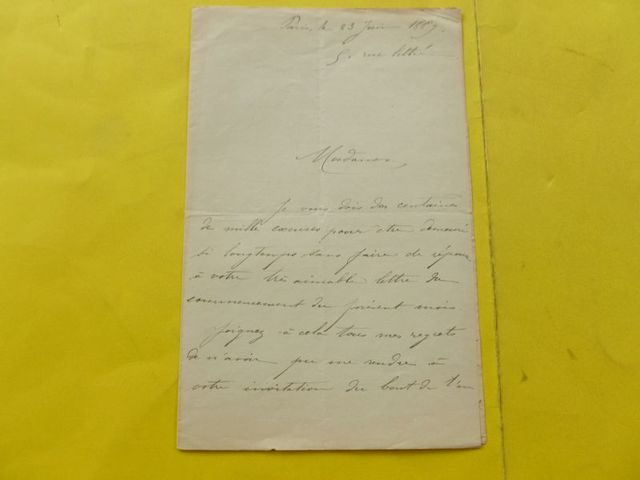 Paris, le 23 Juin 1889.
5. rue Littré
Madame,
Je vous dois des centaines
de mille excuses pour être demeuré
si longtemps sans faire de répon
à votre très aimable lettre du
commencement du présent mois.
Joignez à cela tous mes regrets
de n'avoir pu me rendre à
votre invitation du bout de l'an